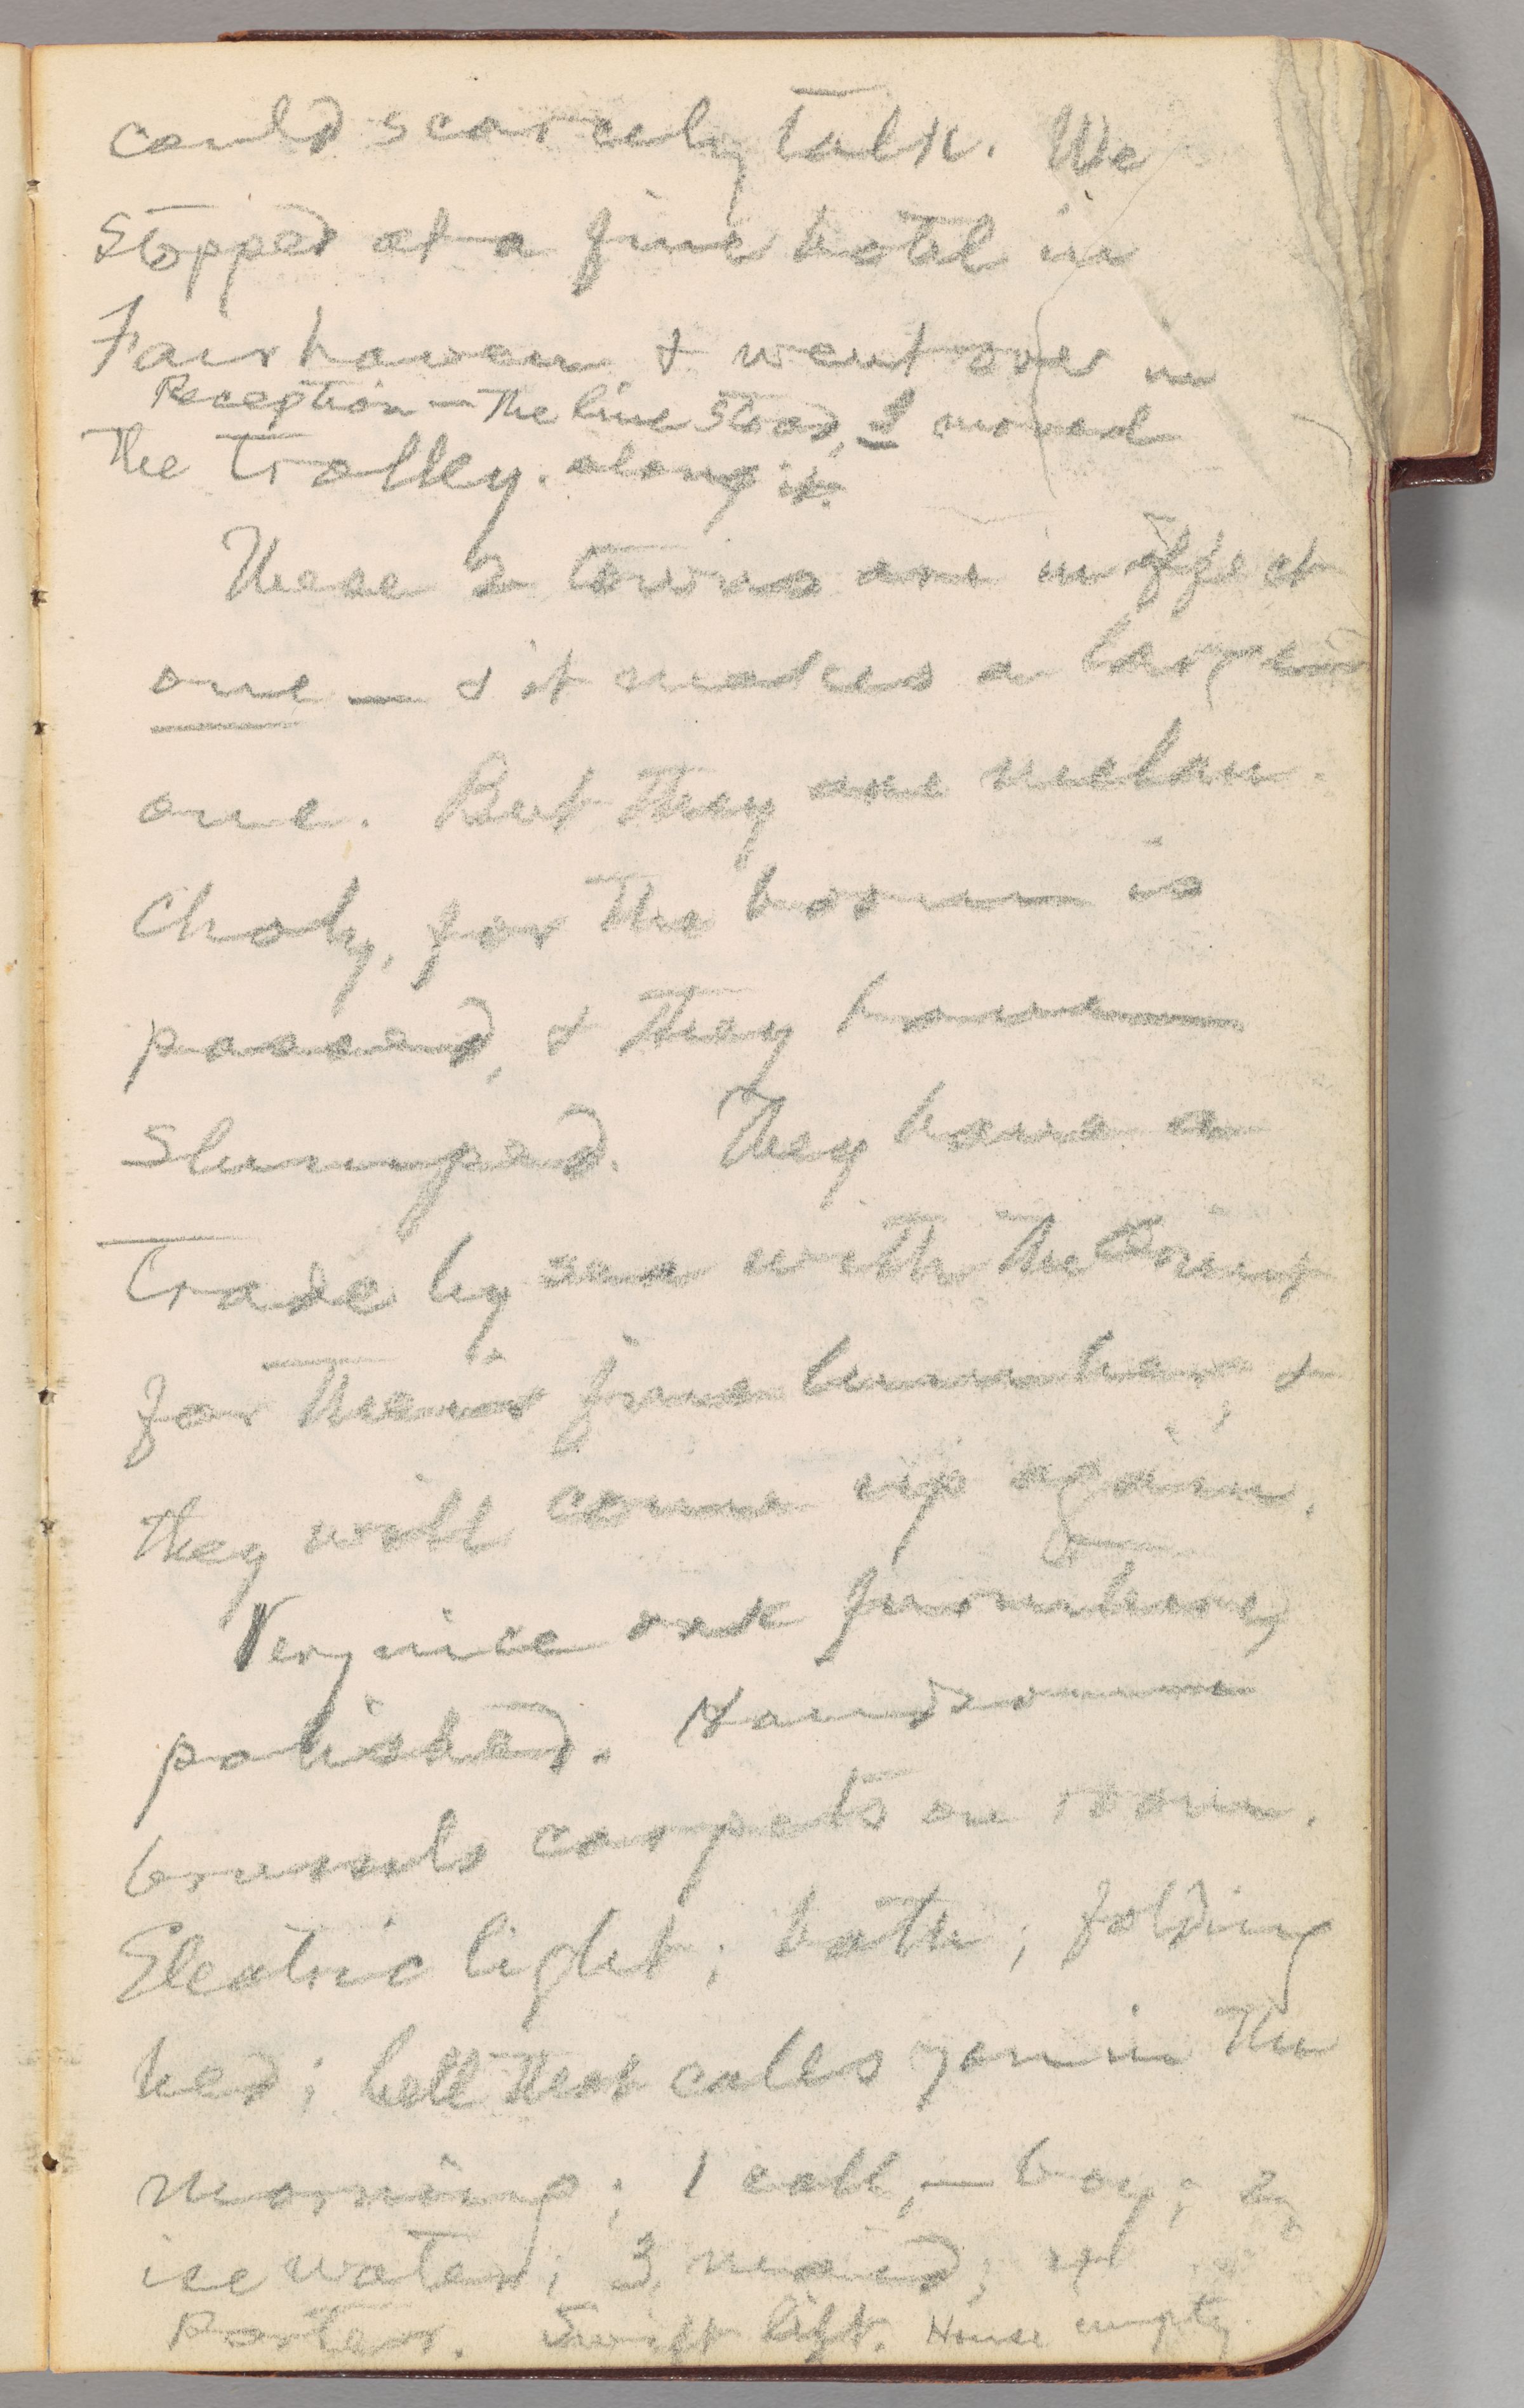 could scarcely talk. We
stopped at a fine hotel in
Fairhaven & went over in
Reception—the line stood, I moved
the trolley. along it.
These 2 towns are in effect
one — & it makes a large
one. But they are melan-
choly, for the boom is
passed, & they have
slumped. They have a
trade by sea with the Orient
for their fine lumber, &
they will come up again.
Very nice oak furniture,
polished. Handsome
brussels carpets on room.
Electric light; bath; folding
bed; bell that calls you in the
morning; 1 call,—boy; 2,
ice water; 3, maid; 4
Porter. Swift lift. House empty.